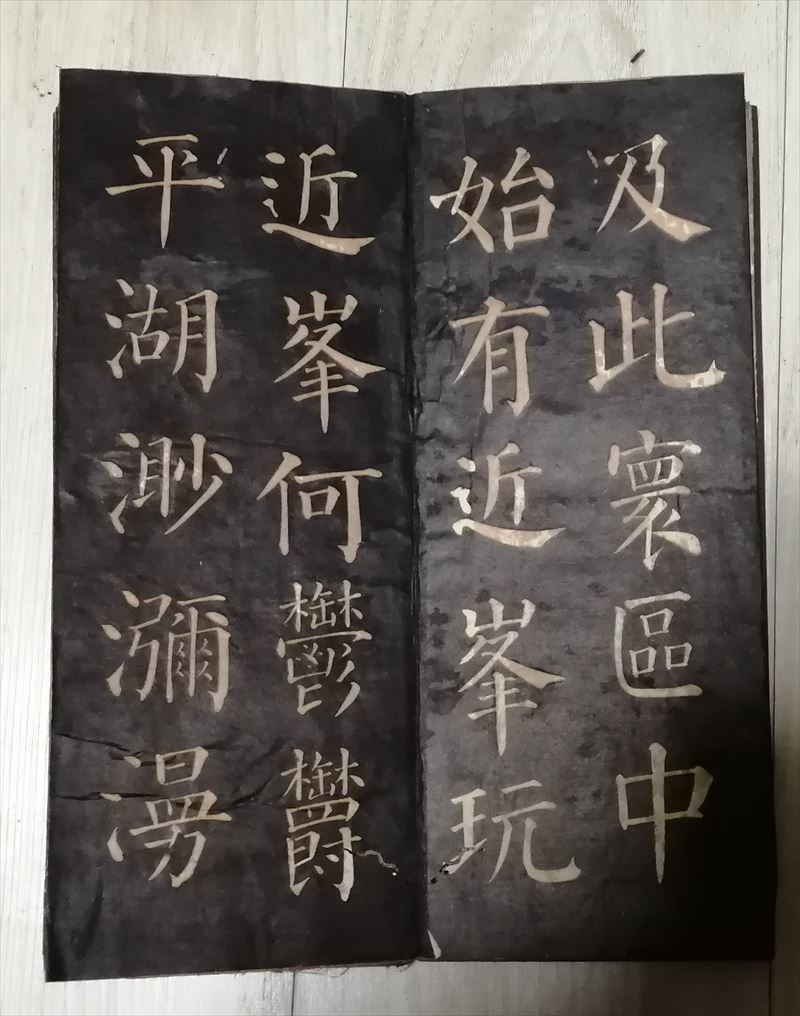 及此寰區中
始有近峯玩
近峯何鬱欝
平湖渺瀰漫